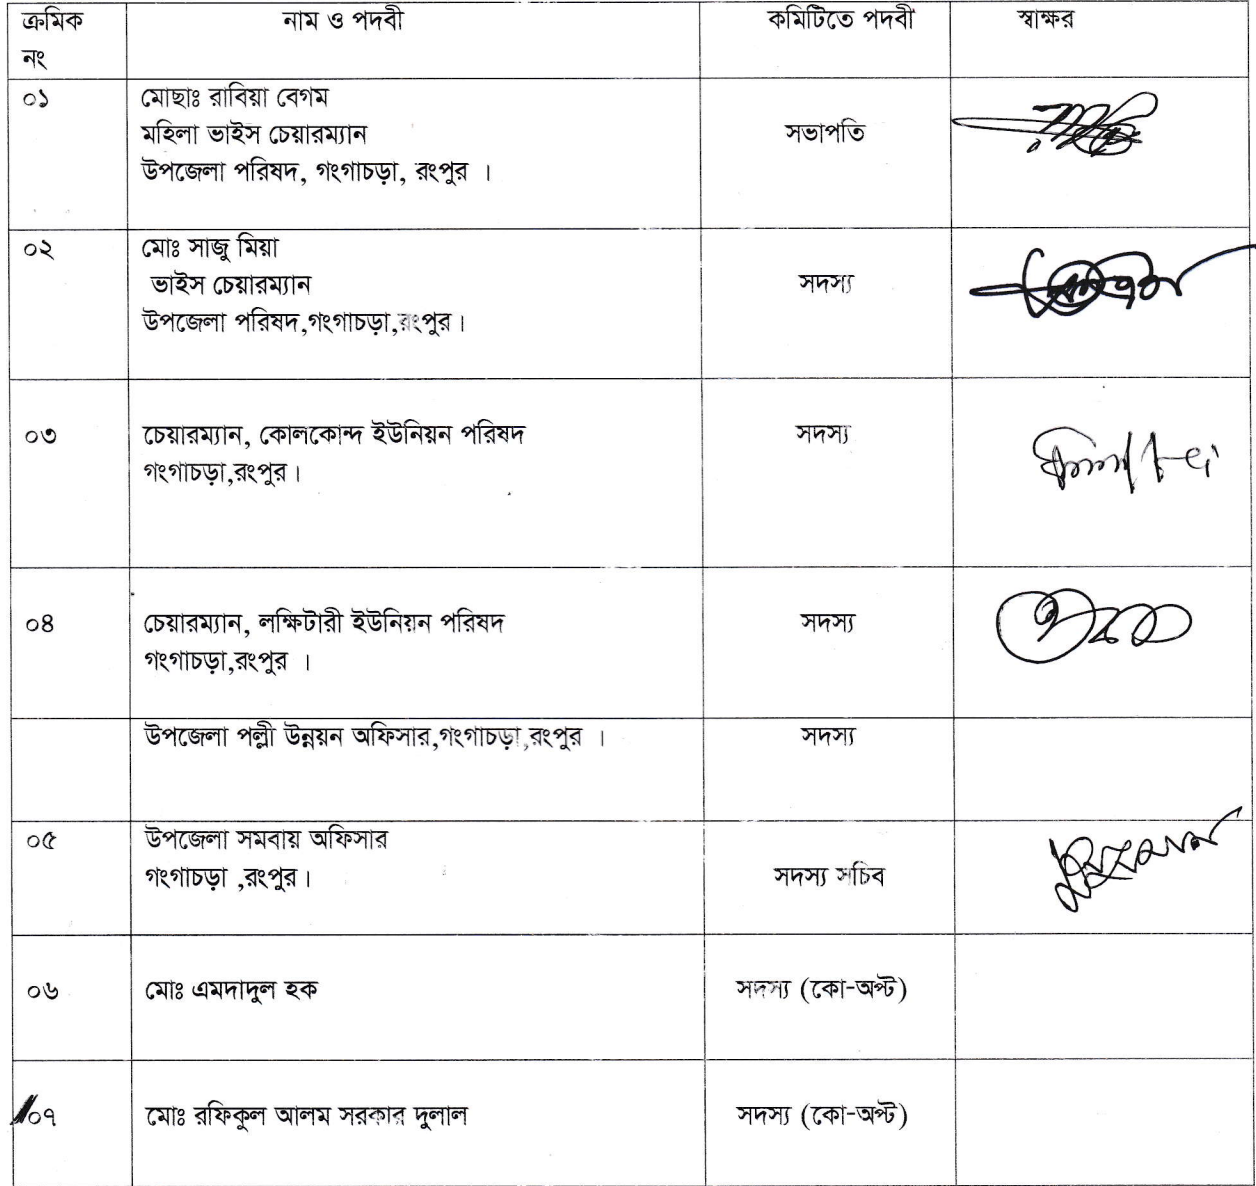 ক্রমিক নং নাম ও পদবী কমিটিতে পদবী স্বাক্ষর
০১ মোছাঃ রাবিয়া বেগম
মহিলা ভাইস চেয়ারম্যান সভাপতি
উপজেলা পরিষদ, গংগাচড়া, রংপুর ।
০২ মোঃ সাজু মিয়া
ভাইস চেয়ারম্যান সদস্য
উপজেলা পরিষদ,গংগাচড়া,রংপুর।
০৩ চেয়ারম্যান, কোলকোন্দ ইউনিয়ন পরিষদ সদস্য
গংগাচড়া,রংপুর।
০৪ চেয়ারম্যান, লক্ষিটারী ইউনিয়ন পরিষদ সদস্য
গংগাচড়া,রংপুর ।
উপজেলা পল্লী উন্নয়ন অফিসার,গংগাচড়া,রংপুর । সদস্য
০৫ উপজেলা সমবায় অফিসার
গংগাচড়া ,রংপুর। সদস্য সচিব
০৬ মোঃ এমদাদুল হক সদস্য (কো-অপ্ট)
০৭ মোঃ রফিকুল আলম সরকার দুলাল সদস্য (কো-অপ্ট)